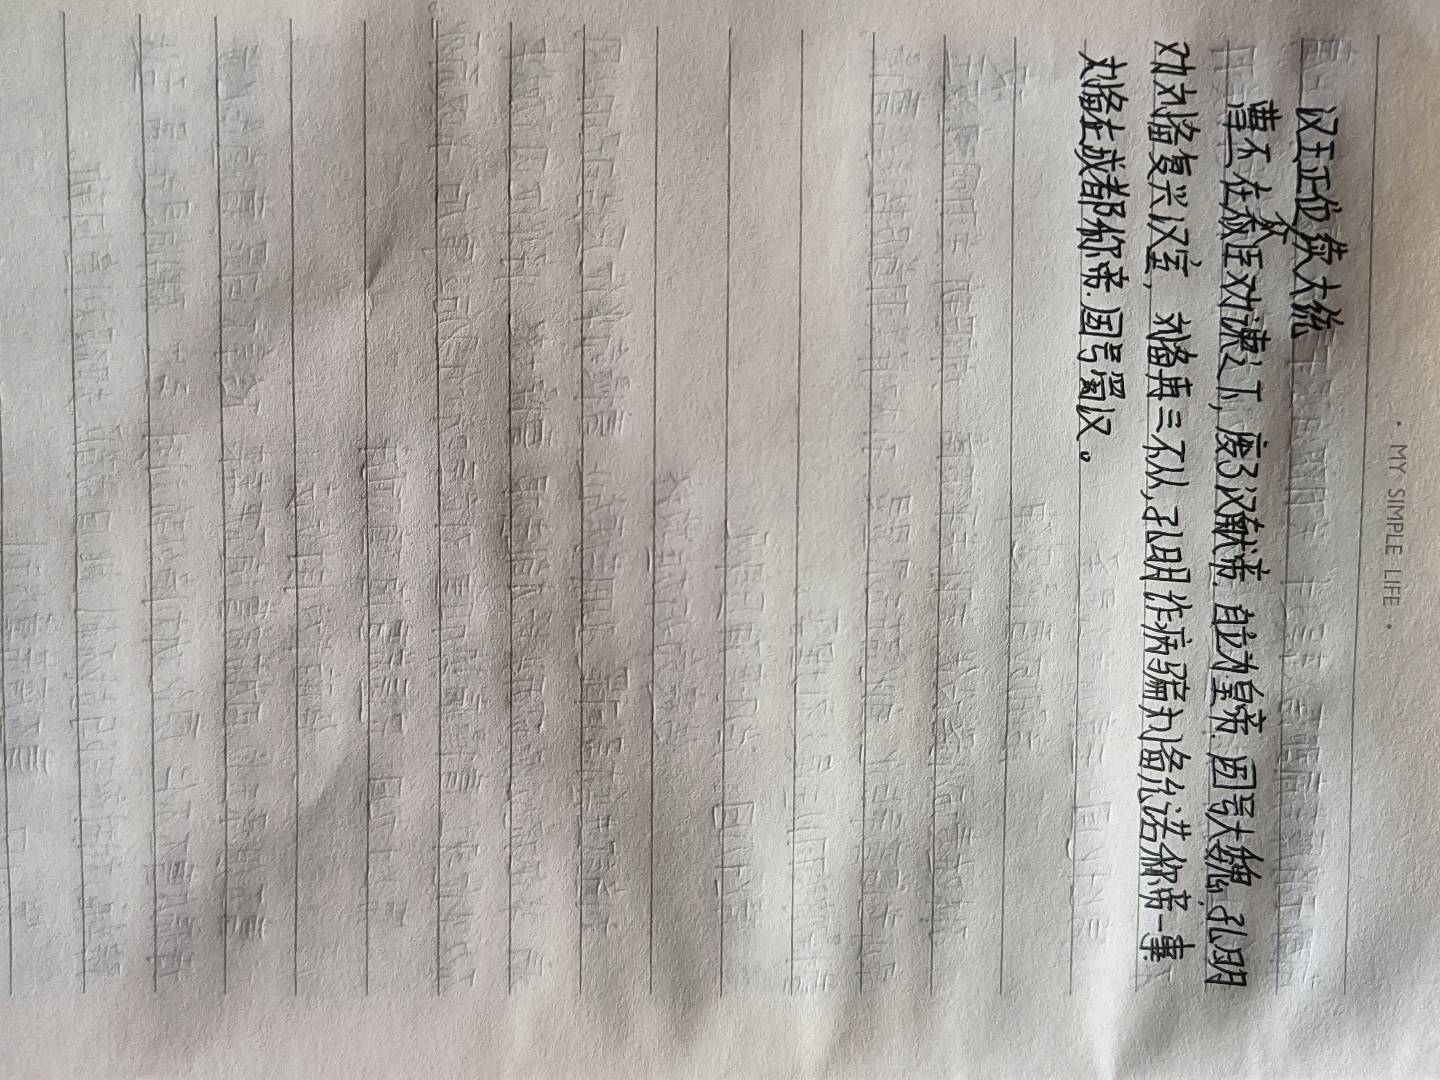 · MY SIMPLE LIFE ·
汉王正位续大统
曹不在众臣劝谏之下,废了汉献帝.自立为皇帝.国号大魏.孔明
劝刘备复兴汉室,刘备再三不从,孔明作病骗刘备允诺称帝一事
刘备在成都称帝.国号蜀汉。